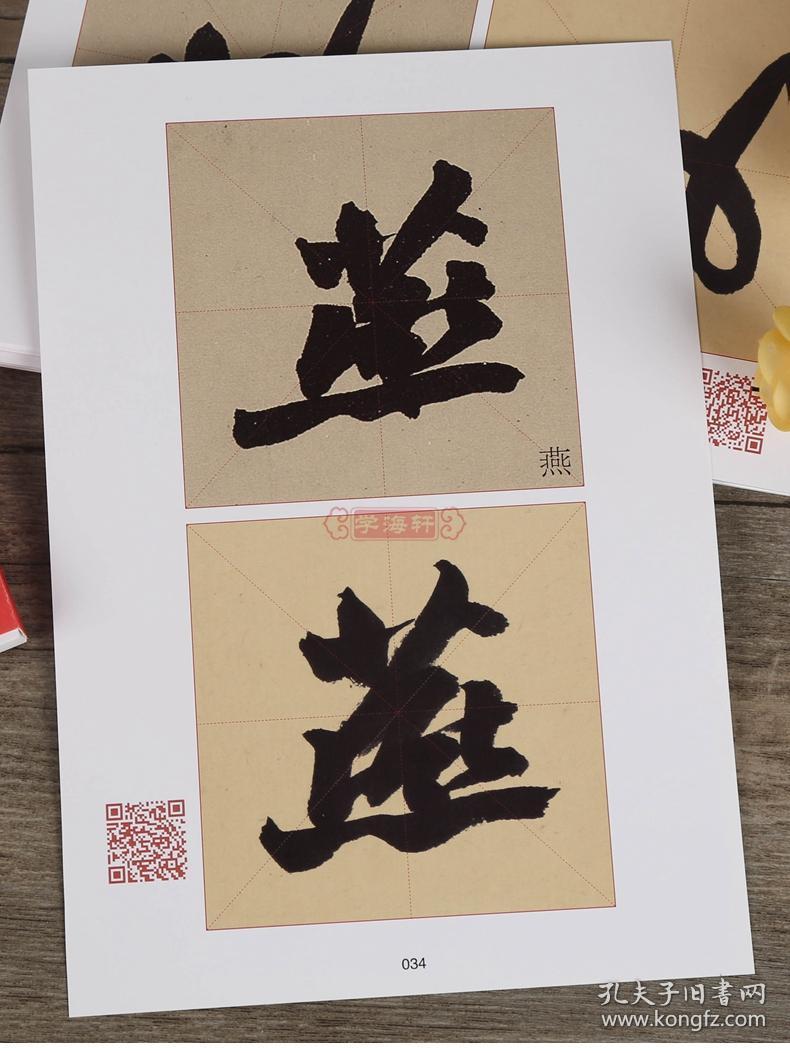 燕
燕
学海轩
燕
034
孔夫子旧书网
www.kongfz.com